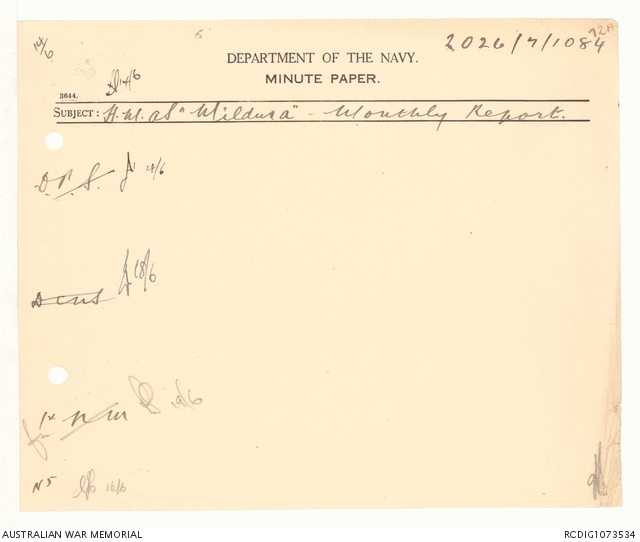 14/6
DEPARTMENT OF THE NAVY.
2026/7/1084
MINUTE PAPER.
3644.
SUBJECT: H.M.A.S "Mildura" - Monthly Report.
D.P.S. 14/6
DCNS 18/6
19/6
NS 16/6
AUSTRALIAN WAR MEMORIAL
RCDIG1073534